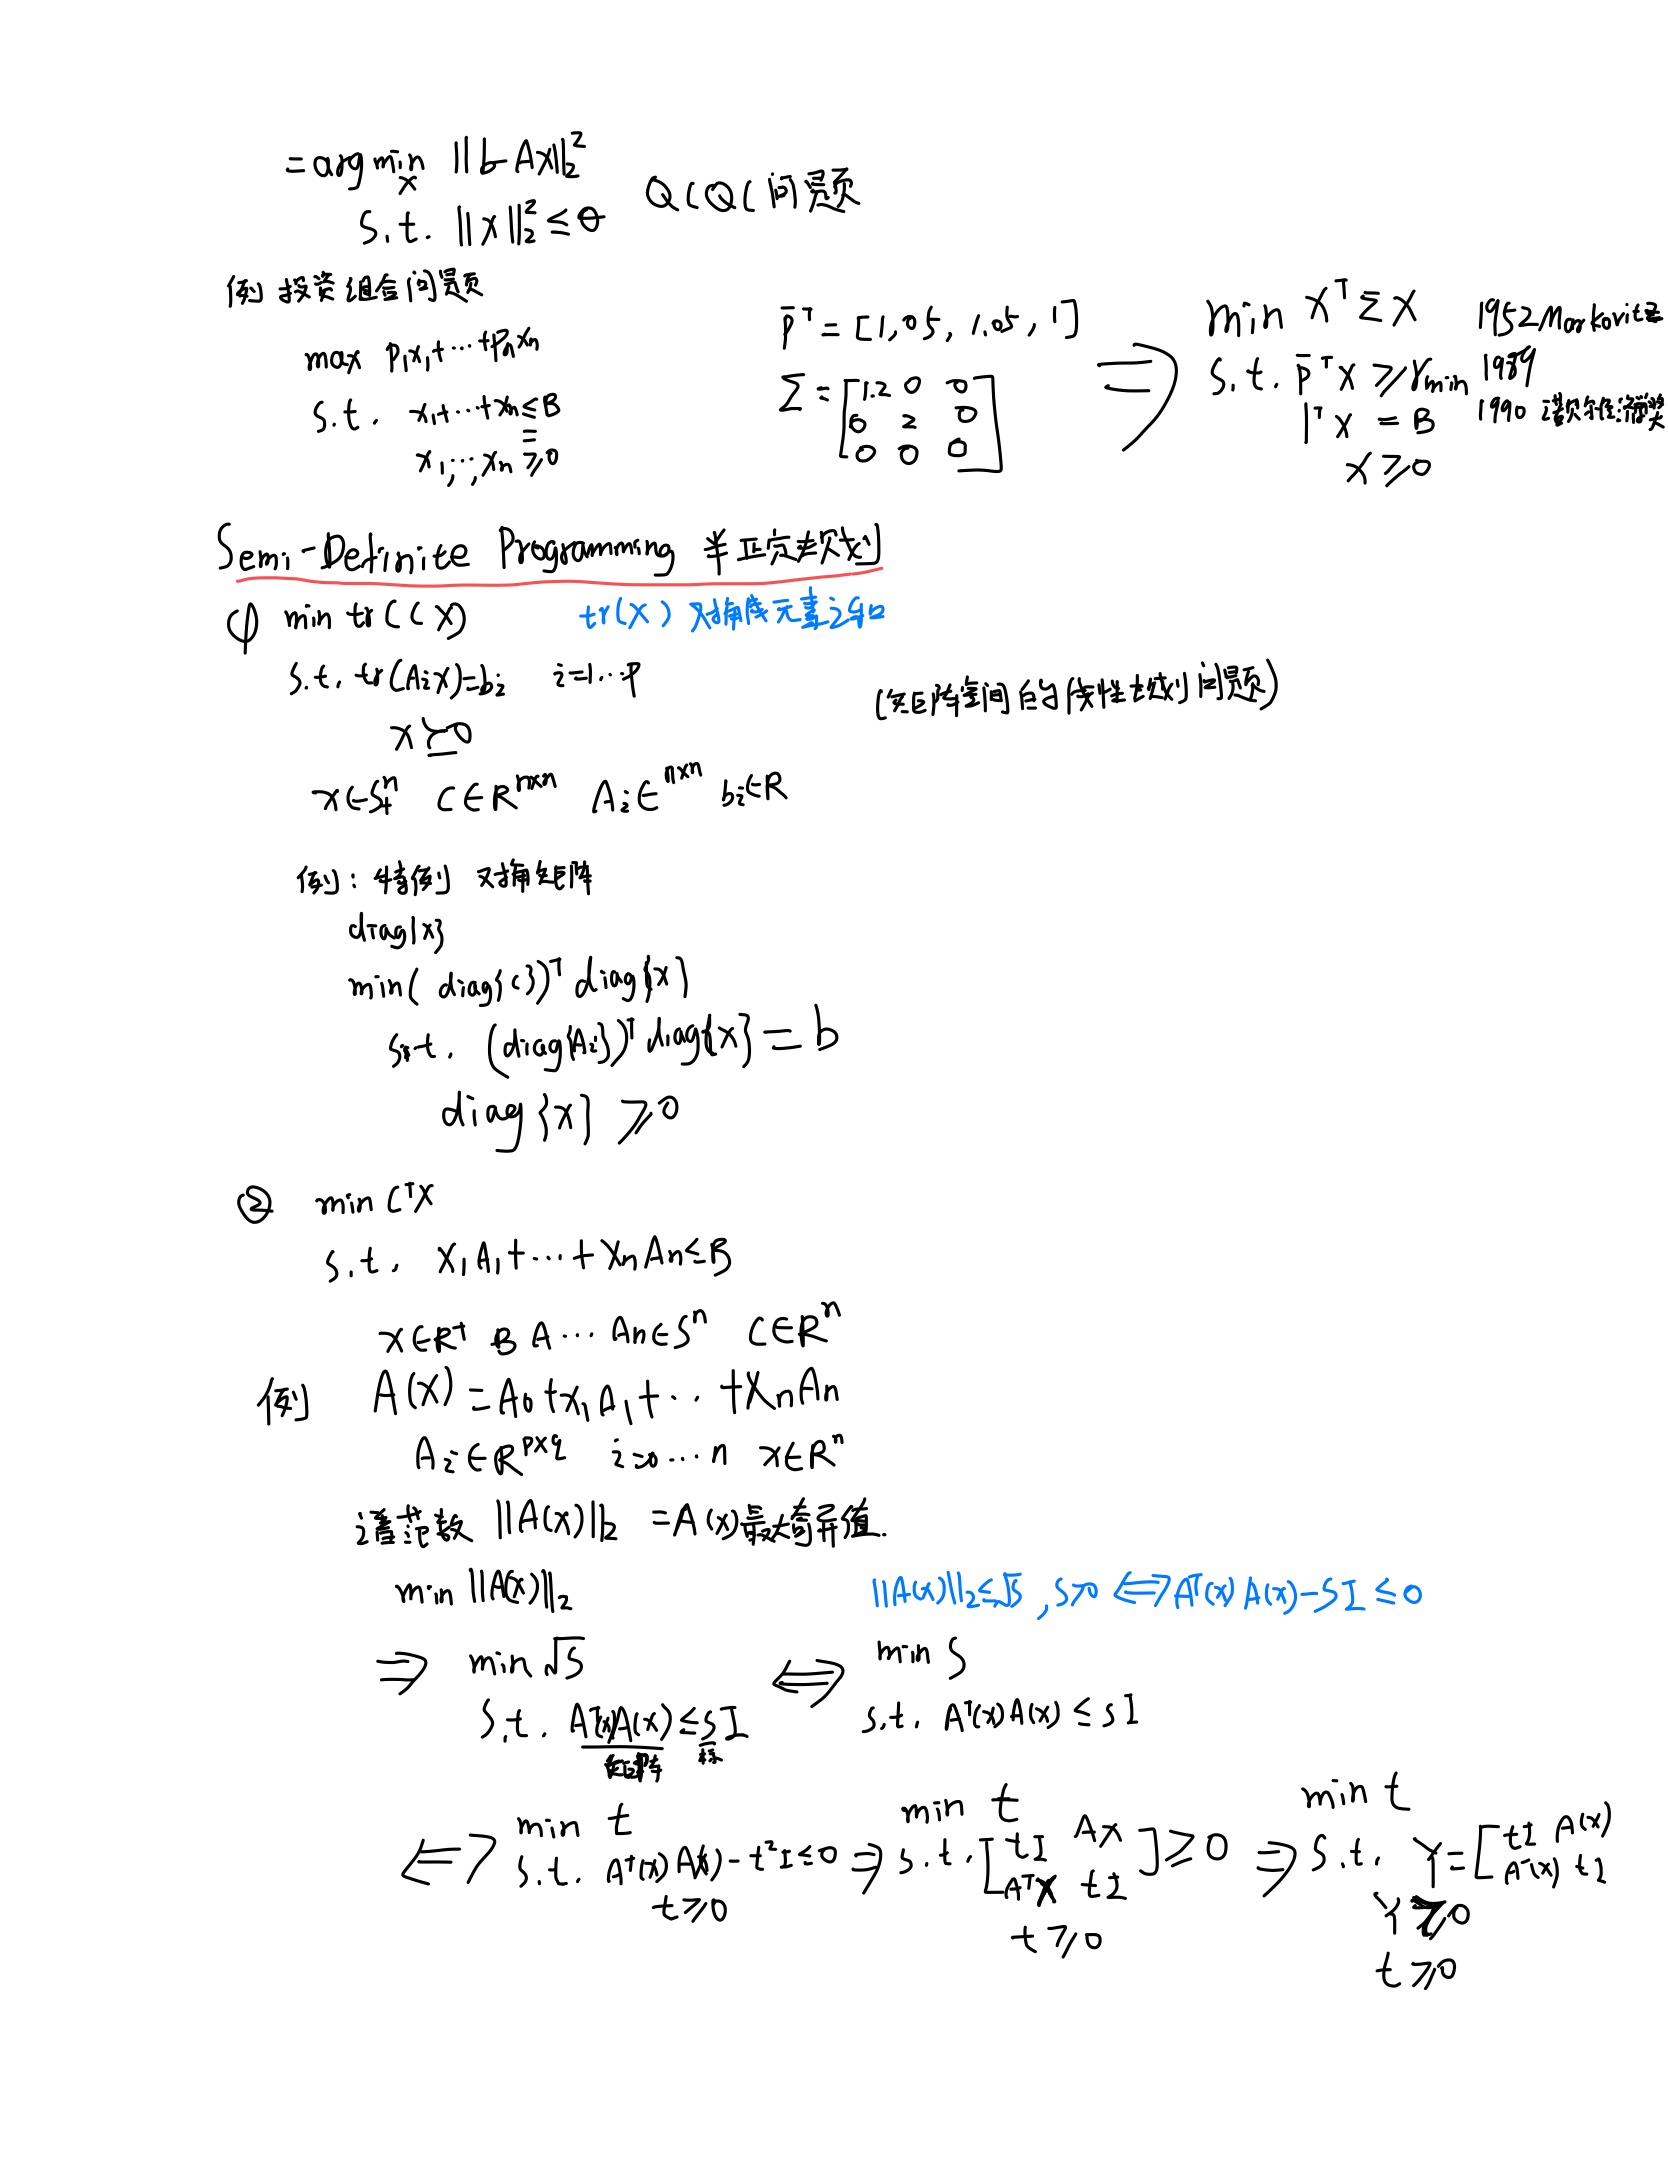 = argmin ||b-Ax||₂²
x
s.t. ||x||₂² ≤ θ QCQC 问题
例 投资组合问题
max p₁x₁+⋯+pₙxₙ
s.t. x₁+⋯+xₙ≤B
=
x₁,⋯,xₙ ≥0
p̄ᵀ = [1,05, 1.05, 1]
Σ = [1.2 0 0
0 2 0
0 0 0]
⇒
min xᵀΣx
s.t. p̄ᵀx ≥ rmin
1ᵀx = B
x ≥ 0
1952 Markovitz
1989
1990 诺贝尔经济奖
Semi-Definite Programming 半正定规划
① min tr(CX) tr(X) 对角线元素之和
s.t. tr(AᵢX)=bᵢ i=1⋯p
(矩阵空间的线性规划问题)
x⪰0
x∈S₊ⁿ C∈Rⁿˣⁿ Aᵢ∈ⁿˣⁿ bᵢ∈R
例: 特例 对角矩阵
diag{x}
min( diag{C})ᵀ diag{x}
s.t. (diag{Aᵢ})ᵀ diag{x} = b
diag{x} ≥0
② min Cᵀx
s.t. x₁A₁+⋯+xₙAₙ≤B
x∈R⁺ B A⋯Aₙ∈Sⁿ C∈Rⁿ
例 A(x) = A₀+x₁A₁+⋯+xₙAₙ
Aᵢ∈R^{p×q} i=0⋯n x∈Rⁿ
谱范数 ||A(x)||₂ = A(x)最大奇异值.
min ||A(x)||₂ ||A(x)||₂≤√s , s≥0 ⟺ Aᵀ(x)A(x)-SI ≤0
⇒ min √s
s.t. Aᵀ(x)A(x) ≤ sI
矩阵 标
⟺ min s
s.t. Aᵀ(x)A(x) ≤ sI
⟺ min t
s.t. Aᵀ(x)A(x)-t²I≤0
t≥0
⇒ min t
s.t. [tI Ax
AᵀX tI] ≥0
t≥0
⇒ min t
s.t. Y=[tI A(x)
Aᵀ(x) tI
Y≥0
t≥0